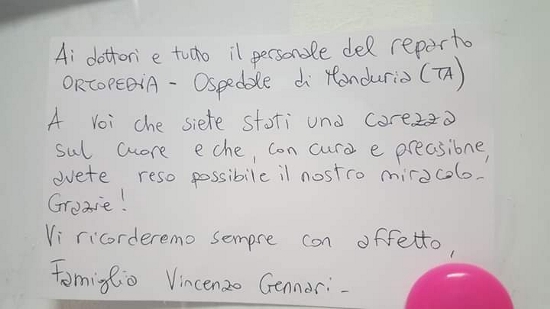 Ai dottori e tutto il personale del reparto
ORTOPEDIA - Ospedale di Manduria (TA)
A voi che siete stati una carezza
sul cuore e che, con cura e precisione,
avete reso possibile il nostro miracolo-
Grazie!
Vi ricorderemo sempre con affetto,
Famiglia Vincenzo Gennari-